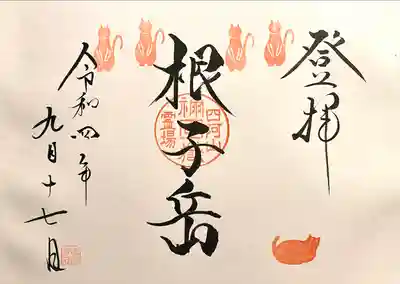 登拝
根子岳
四阿山
霊場
令和四年
九月十七日